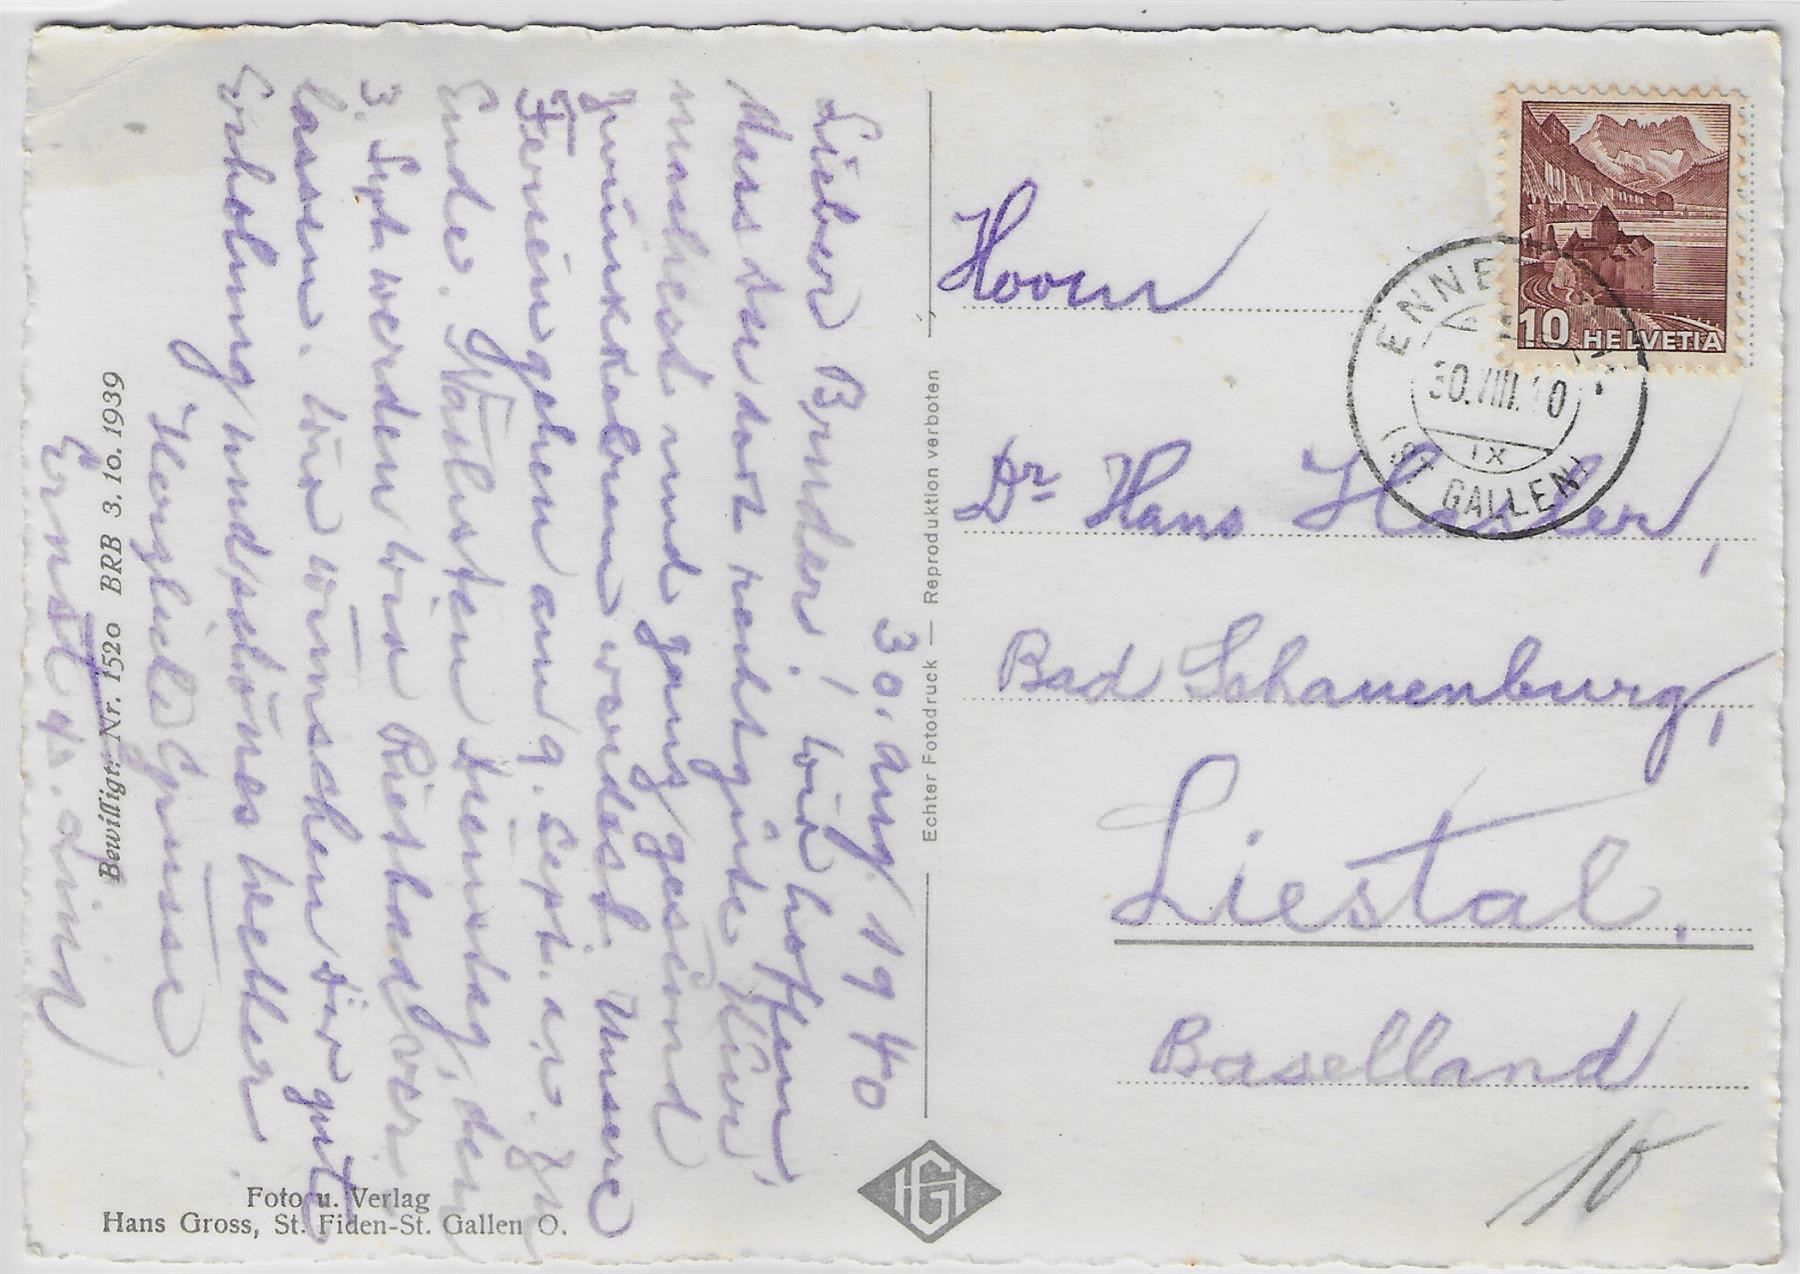 30. Aug. 1940
Lieber Bruder! Wir hoffen,
dass du dort recht gute Kur
machest und ganz gesund
zurückkehren werdest. Unsere
Ferien gehen am 9. Sept. an. Zu
Ende. Nächsten Dienstag, den
3. Sept. werden wir Rietbad ver
lassen. Wir wünschen Dir gut
Erholung und schönes Wetter.
Herzliche Grüsse
Ernst u. Lina
Bewilligt: Nr. 1520 BRB 3. 10. 1939
Foto u. Verlag
Hans Gross, St. Fiden-St. Gallen O.
Echter Fotodruck — Reproduktion verboten
HG
10 HELVETIA
30.VIII. 0
IX
(ST GALLEN)
Herrn
Dr. Hans Hosler,
Bad Schauenburg,
Liestal.
Baselland
10